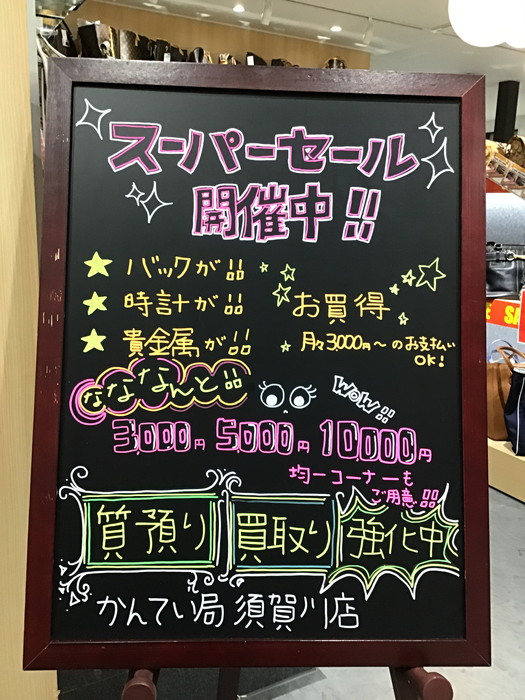 スーパーセール
開催中!!
★ バックが!!
★ 時計が!!
★ 貴金属が!!
お買得
月々3,000円〜のお支払い
OK!
なななんと!!
WOW!!
3,000円 5,000円 10,000円
均一コーナーも
ご用意!!
質預り 買取り 強化中
かんてい局 須賀川店
SA